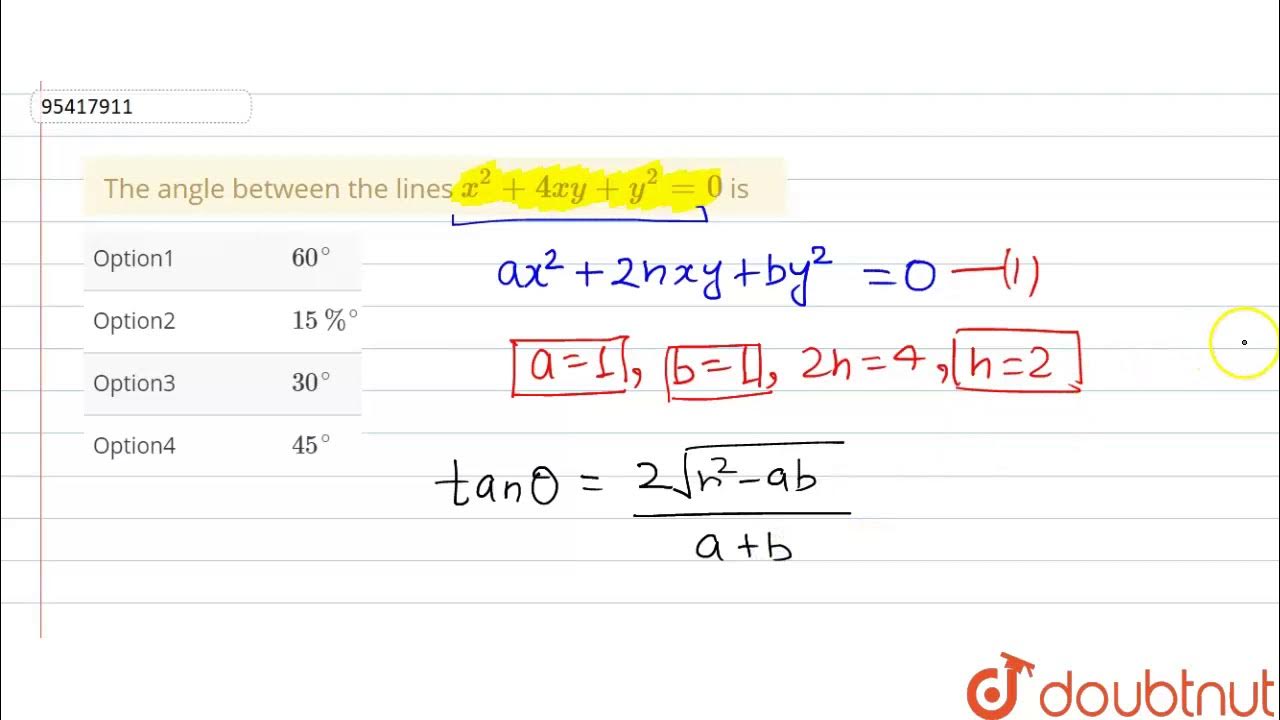 95417911
The angle between the lines x² + 4xy + y² = 0 is
Option1 60°
Option2 15 %°
Option3 30°
Option4 45°
ax² + 2hxy + by² = 0 —(1)
a = 1, b = 1, 2h = 4, h = 2
tanθ = 2√(h² - ab) / (a + b)
doubtnut